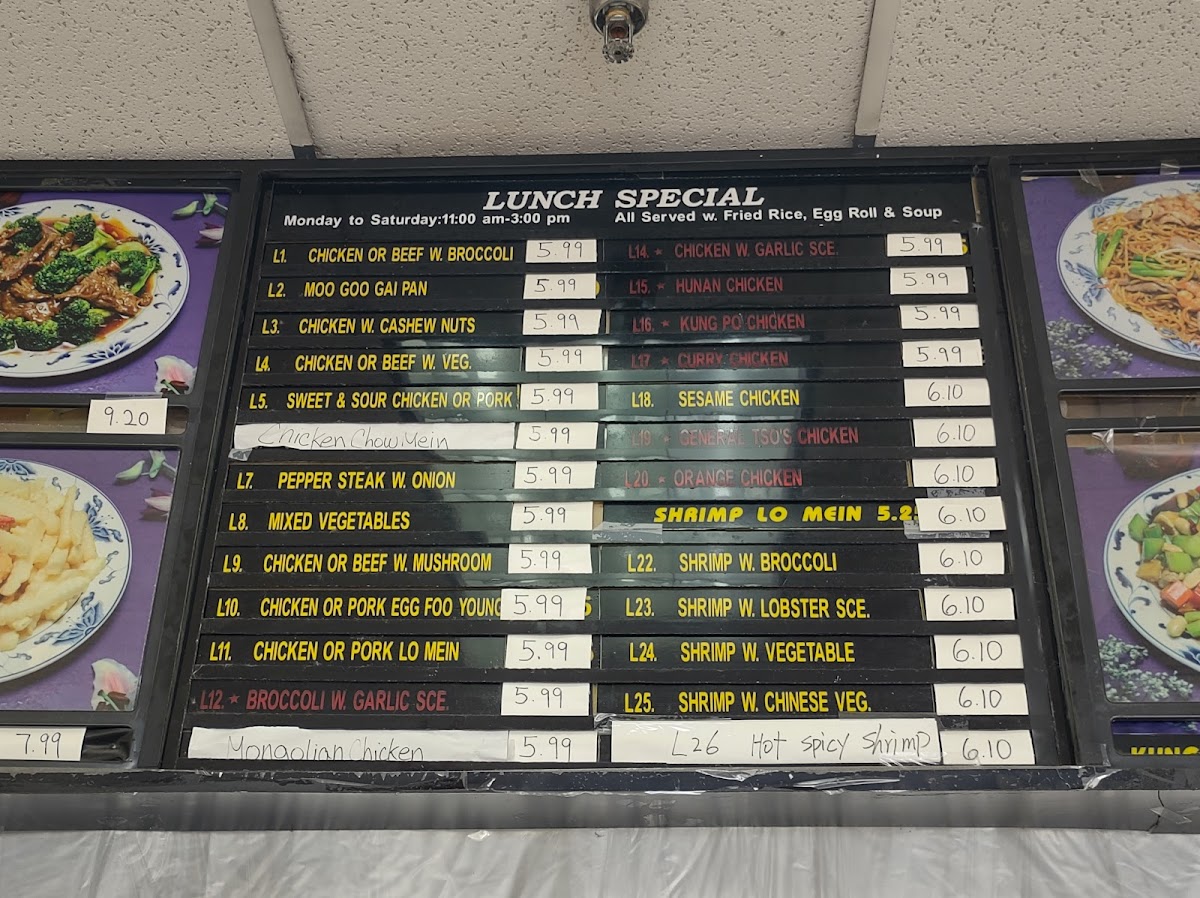 LUNCH SPECIAL
Monday to Saturday:11:00 am-3:00 pm All Served w. Fried Rice, Egg Roll & Soup
L1. CHICKEN OR BEEF W. BROCCOLI 5.99
L2. MOO GOO GAI PAN 5.99
L3. CHICKEN W. CASHEW NUTS 5.99
L4. CHICKEN OR BEEF W. VEG. 5.99
L5. SWEET & SOUR CHICKEN OR PORK 5.99
Chicken Chow Mein 5.99
L7. PEPPER STEAK W. ONION 5.99
L8. MIXED VEGETABLES 5.99
L9. CHICKEN OR BEEF W. MUSHROOM 5.99
L10. CHICKEN OR PORK EGG FOO YOUNG 5.99
L11. CHICKEN OR PORK LO MEIN 5.99
L12. * BROCCOLI W. GARLIC SCE. 5.99
Mongolian Chicken 5.99
L14. * CHICKEN W. GARLIC SCE. 5.99
L15. * HUNAN CHICKEN 5.99
L16. * KUNG PO CHICKEN 5.99
L17 * CURRY CHICKEN 5.99
L18. SESAME CHICKEN 6.10
L19 * GENERAL TSO'S CHICKEN 6.10
L20 * ORANGE CHICKEN 6.10
SHRIMP LO MEIN 5.25 6.10
L22. SHRIMP W. BROCCOLI 6.10
L23. SHRIMP W. LOBSTER SCE. 6.10
L24. SHRIMP W. VEGETABLE 6.10
L25. SHRIMP W. CHINESE VEG. 6.10
L26 Hot spicy Shrimp 6.10
9.20
7.99
KUNG